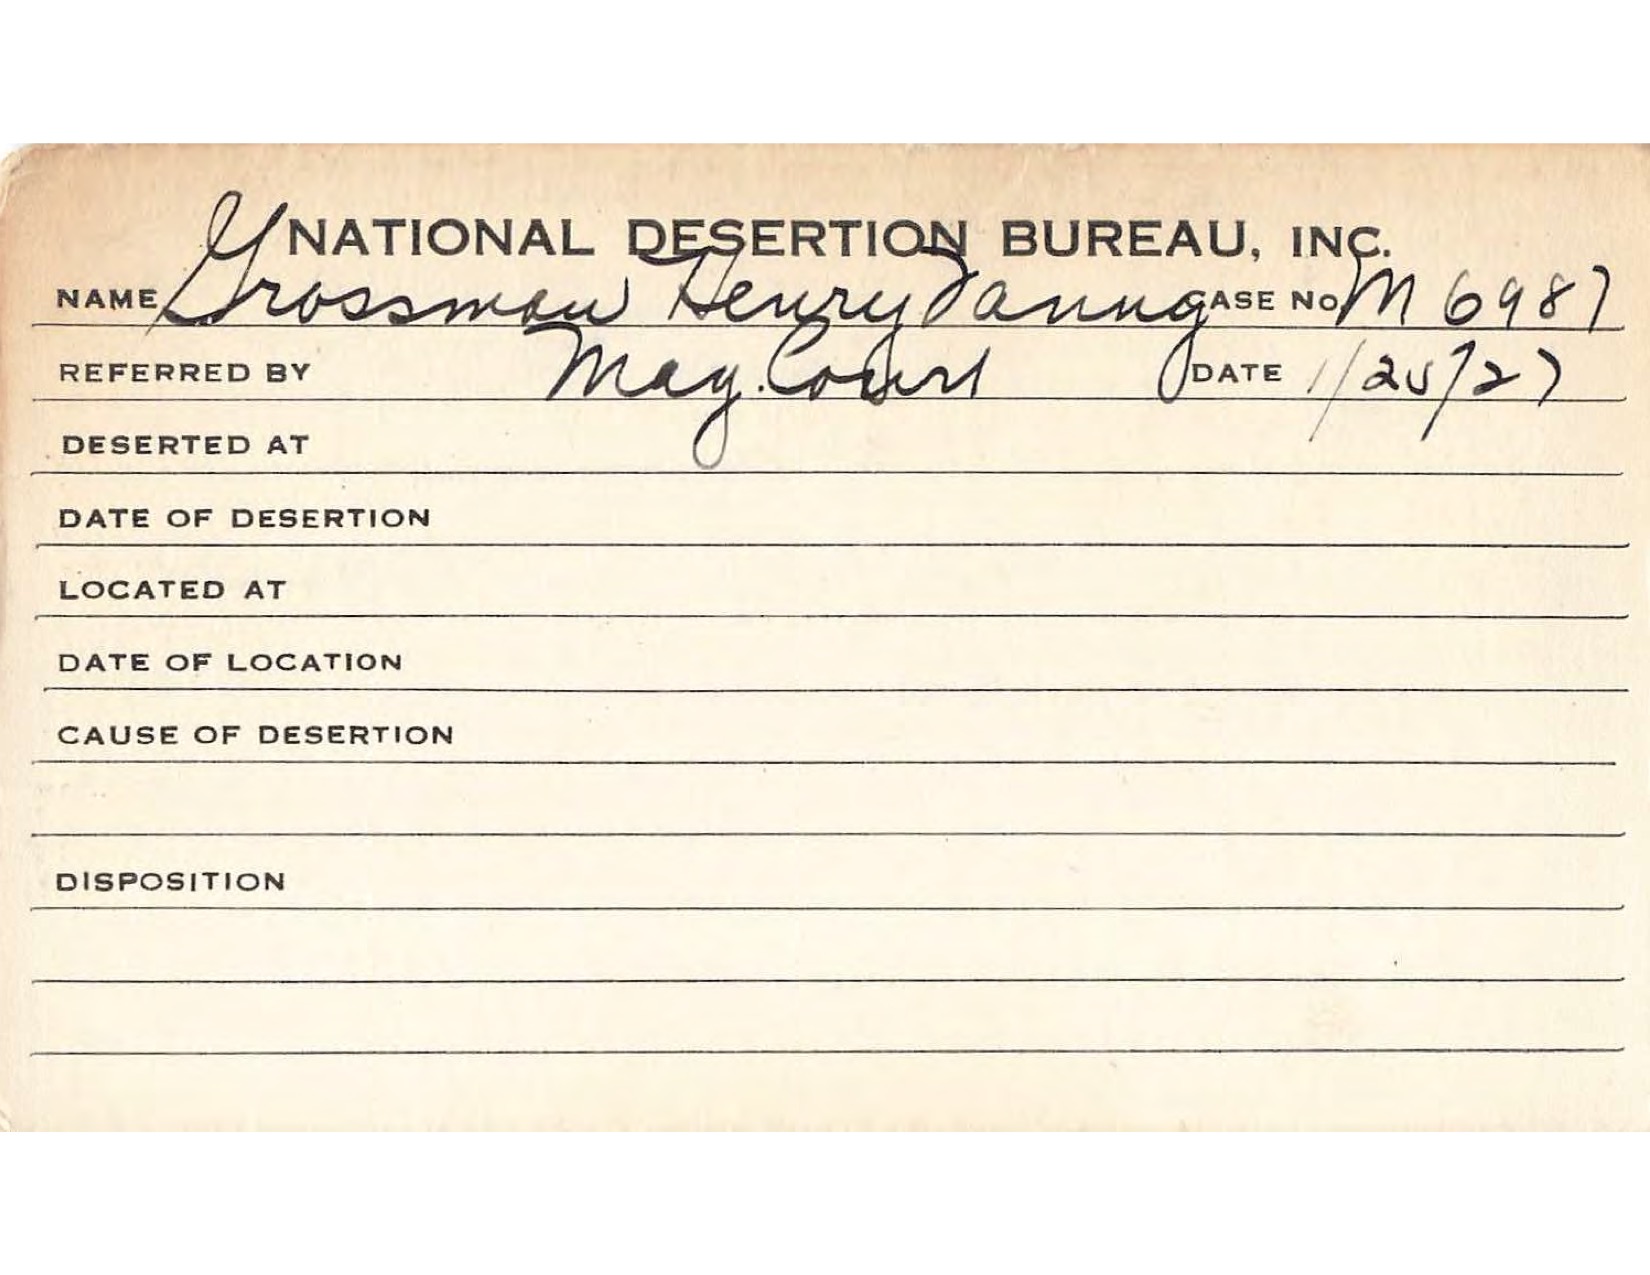 NATIONAL DESERTION BUREAU, INC.
NAME Grossman Henry Fanny CASE NO. M 6987
REFERRED BY Mag. Court DATE 1/25/27
DESERTED AT
DATE OF DESERTION
LOCATED AT
DATE OF LOCATION
CAUSE OF DESERTION
DISPOSITION